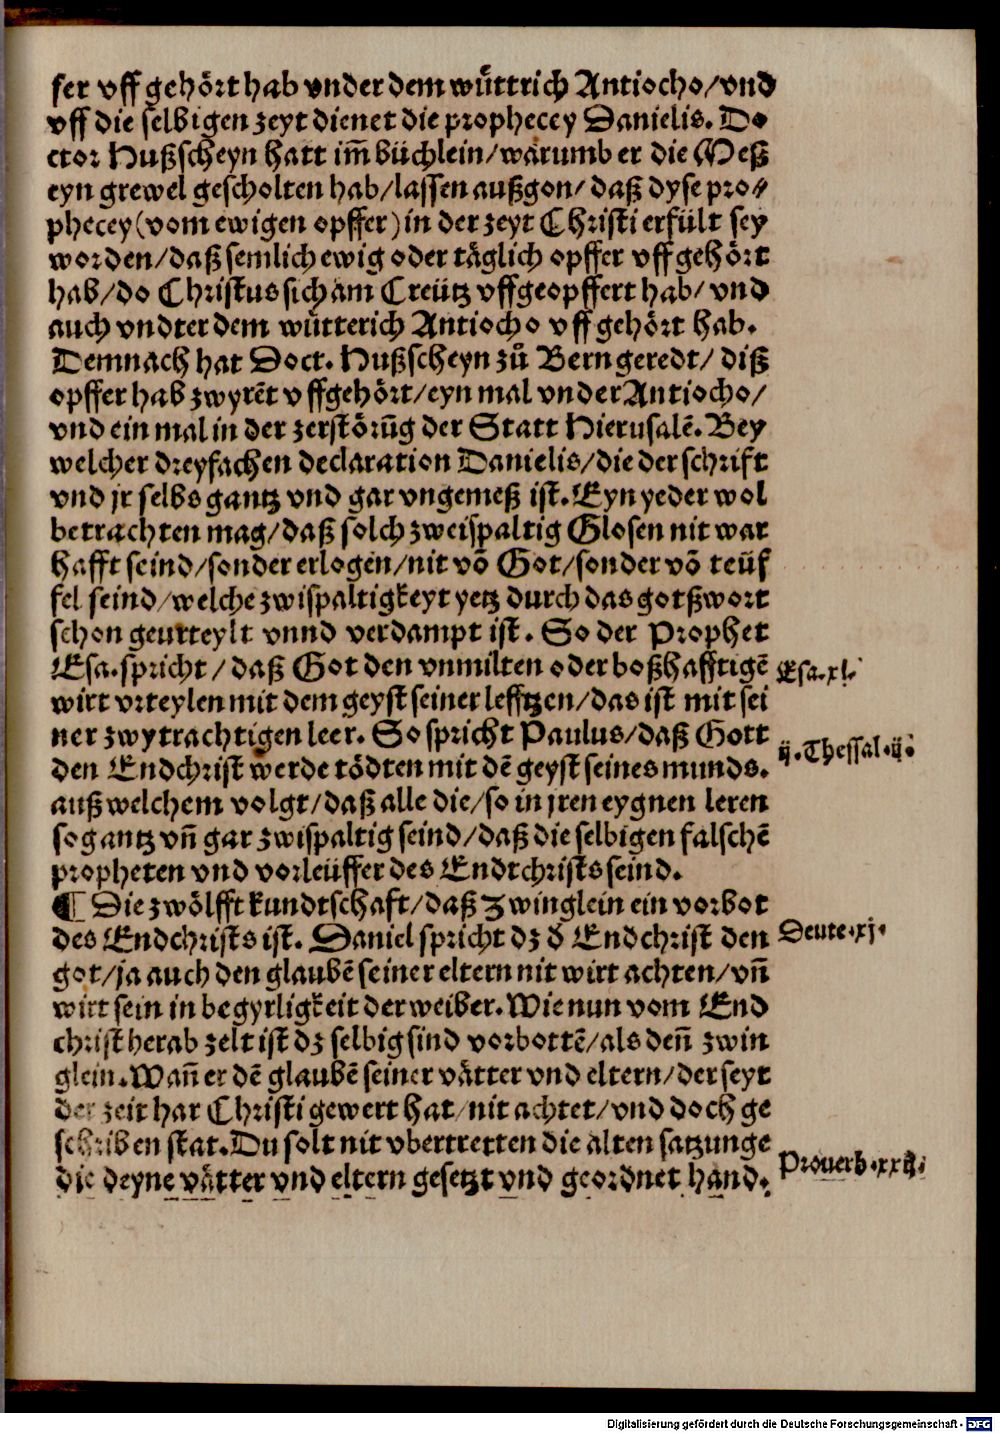 fer vff gehört hab vnder dem wüttrich Antiocho/vnd
vff die selbigen zeyt dienet die prophecey Danielis. Do
ctor Hußscheyn hatt im̄ büchlein/warumb er die Meß
eyn grewel gescholten hab/lassen außgon/daß dyse pro⸗
phecey (vom ewigen opffer) in der zeyt Christi erfült sey
worden/daß semlich ewig oder täglich opffer vff gehört
hab/do Christus sich am Creütz vffgeopffert hab/vnd
auch vndter dem wütterich Antiocho vff gehört hab.
Demnach hat Doct. Hußscheyn zů Bern geredt/diß
opffer hab zwyrēt vffgehört/eyn mal vnder Antiocho/
vnd ein mal in der zerstörūg der Statt Hierusalē. Bey
welcher dreyfachen declaration Danielis/die der schrift
vnd jr selbs gantz vnd gar vngemeß ist. Eyn yeder wol
betrachten mag/daß solch zweispaltig Glosen nit war
hafft seind/sonder erlogen/nit vō Got/sonder vō teüf
fel seind/welche zwispaltigkeyt yetz durch das gotßwort
schon geurteylt vnnd verdampt ist. So der Prophet
Esa. spricht/daß Got den vnmilten oder boßhafftigē
Esa. xl.
wirt vrteylen mit dem geyst seiner lefftzen/das ist mit sei
ner zwytrachtigen leer. So spricht Paulus/daß Gott
den Endchrist werde tödten mit dē geyst seines munds.
ij. Thessal. ij.
auß welchem volgt/daß alle die/so in jren eygnen leren
so gantz vn̄ gar zwispaltig seind/daß die selbigen falschē
propheten vnd vorleüffer des Endtchrists seind.
¶ Die zwölfft kundtschaft/daß Zwinglein ein vorbot
des Endchrists ist. Daniel spricht dz ď Endchrist den
Deute. xj.
got/ja auch den glaubē seiner eltern nit wirt achten/vn̄
wirt sein in begyrligkeit der weiber. Wie nun vom End
christ herab zelt ist dz selbig sind vorbottē/als den̄ zwin
glein. Wan̄ er dē glaubē seiner vätter vnd eltern/der seyt
der zeit har Christi gewert hat/nit achtet/vnd doch ge
schriben stat. Du solt nit vbertretten die alten satzunge
die deyne vätter vnd eltern gesetzt vnd geordnet hand.
Prouerb. xxij.
Digitalisierung gefördert durch die Deutsche Forschungsgemeinschaft - DFG